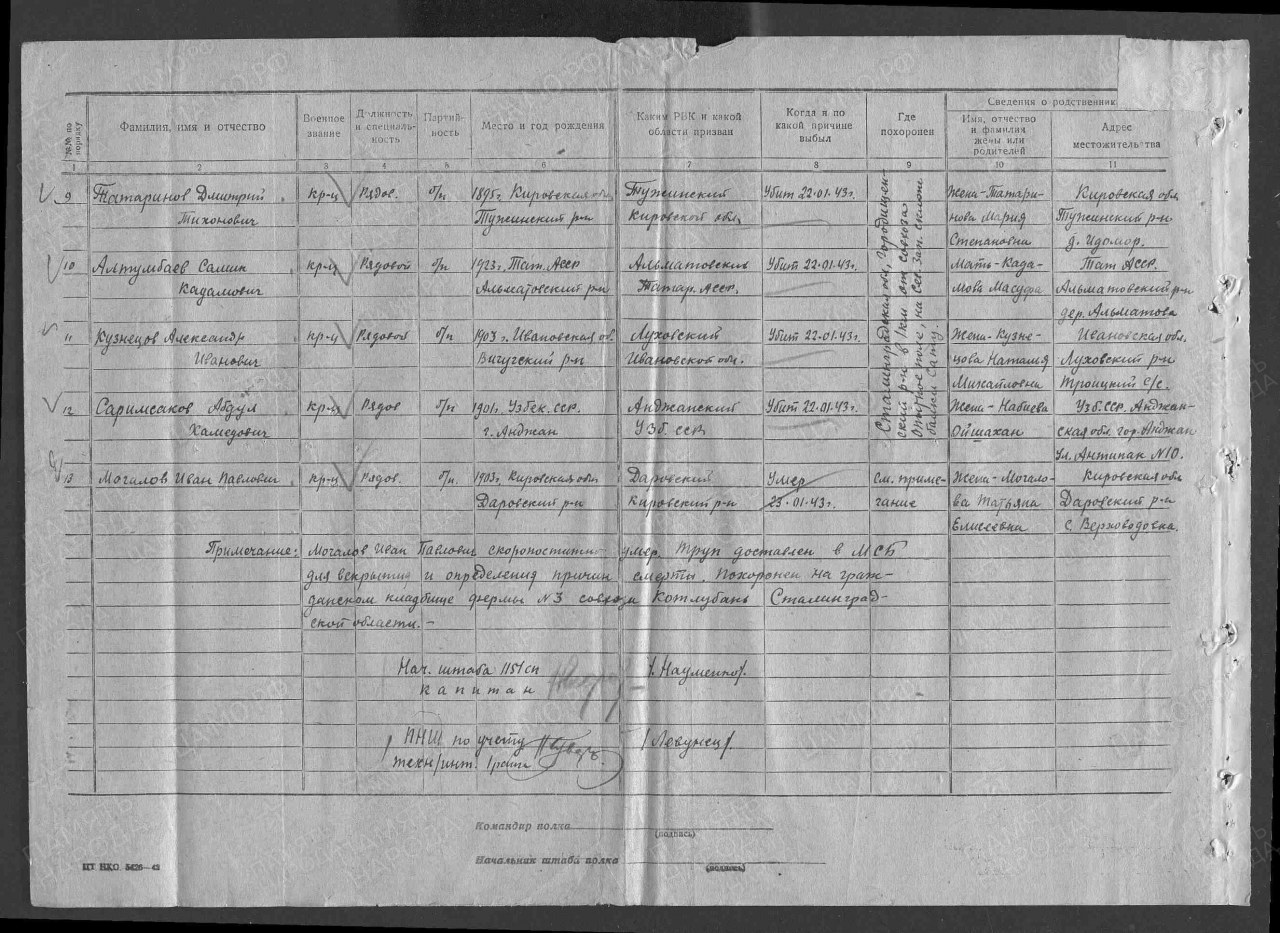 Сведения о родственник
№№ по порядку
Фамилия, имя и отчество
Военное звание
Должность и специальность
Партийность
Место и год рождения
Каким РВК и какой области призван
Когда и по какой причине выбыл
Где похоронен
Имя, отчество и фамилия жены или родителей
Адрес местожительства
1 2 3 4 5 6 7 8 9 10 11
9 Татаринов Дмитрий кр-ц Рядов. б/п 1895г. Кировская обл Тужинский Убит 22.01.43г. Жена-Татари- Кировская обл
Тихонович Тужинский р-н Кировской обл нова Мария Тужинский р-н
Степановна д. Идомор.
10 Алтумбаев Салик кр-ц Рядовой б/п 1923г. Тат. АССР Альматовский Убит 22.01.43г. Мать-Када- Тат АССР.
Кадамович Альматовский р-н Татар. АССР. мова Масуфа Альматовский р-н
дер. Альматова
11 Кузнецов Александр кр-ц Рядовой б/п 1903г. Ивановская об. Луховский Убит 22.01.43г. Жена-Кузне- Ивановская обл.
Иванович Вичугский р-н Ивановской обл. цова Наталия Луховский р-н
Михайловна Троицкий с/с.
12 Саримсаков Абдул кр-ц Рядов б/п 1901г. Узбек.ССР. Анджанский Убит 22.01.43г. Жена-Набиева Узб.ССР. Анджан-
Хамедович г. Анджан УЗб. ССР Ойшахан ская обл. гор. Анджан
Ул. Антипак №10.
Сталинградская обл, Городищен-
ский р-н в 1км от совхоза
Опытное поле, на сев. зап. склоне
балки
13 Могилов Иван Павлович кр-ц Рядов. б/п. 1903г. Кировская обл Даровский Умер см. приме- Жена-Могало- Кировская обл
Даровский р-н Кировский р-н 23.01.43г. чание ва Татьяна Даровский р-н
Елисеевна с. Верховодовка.
Примечание: Могалов Иван Павлович скоропостижно умер. Труп доставлен в МСБ
для вскрытия и определения причин смерти. Похоронен на граж-
данском кладбище фермы №3 совхоза Котлубань Сталинград-
ской области.-
Нач. штаба 1151сп /. Науменко/.
капитан
ПНШ по учету /Левунец/.
техн/инт. 1ранга
Командир полка
(подпись)
Начальник штаба полка
(подпись)
ЦТ НКО 5426—42
ЦАМО.РФ
ПАМЯТЬ